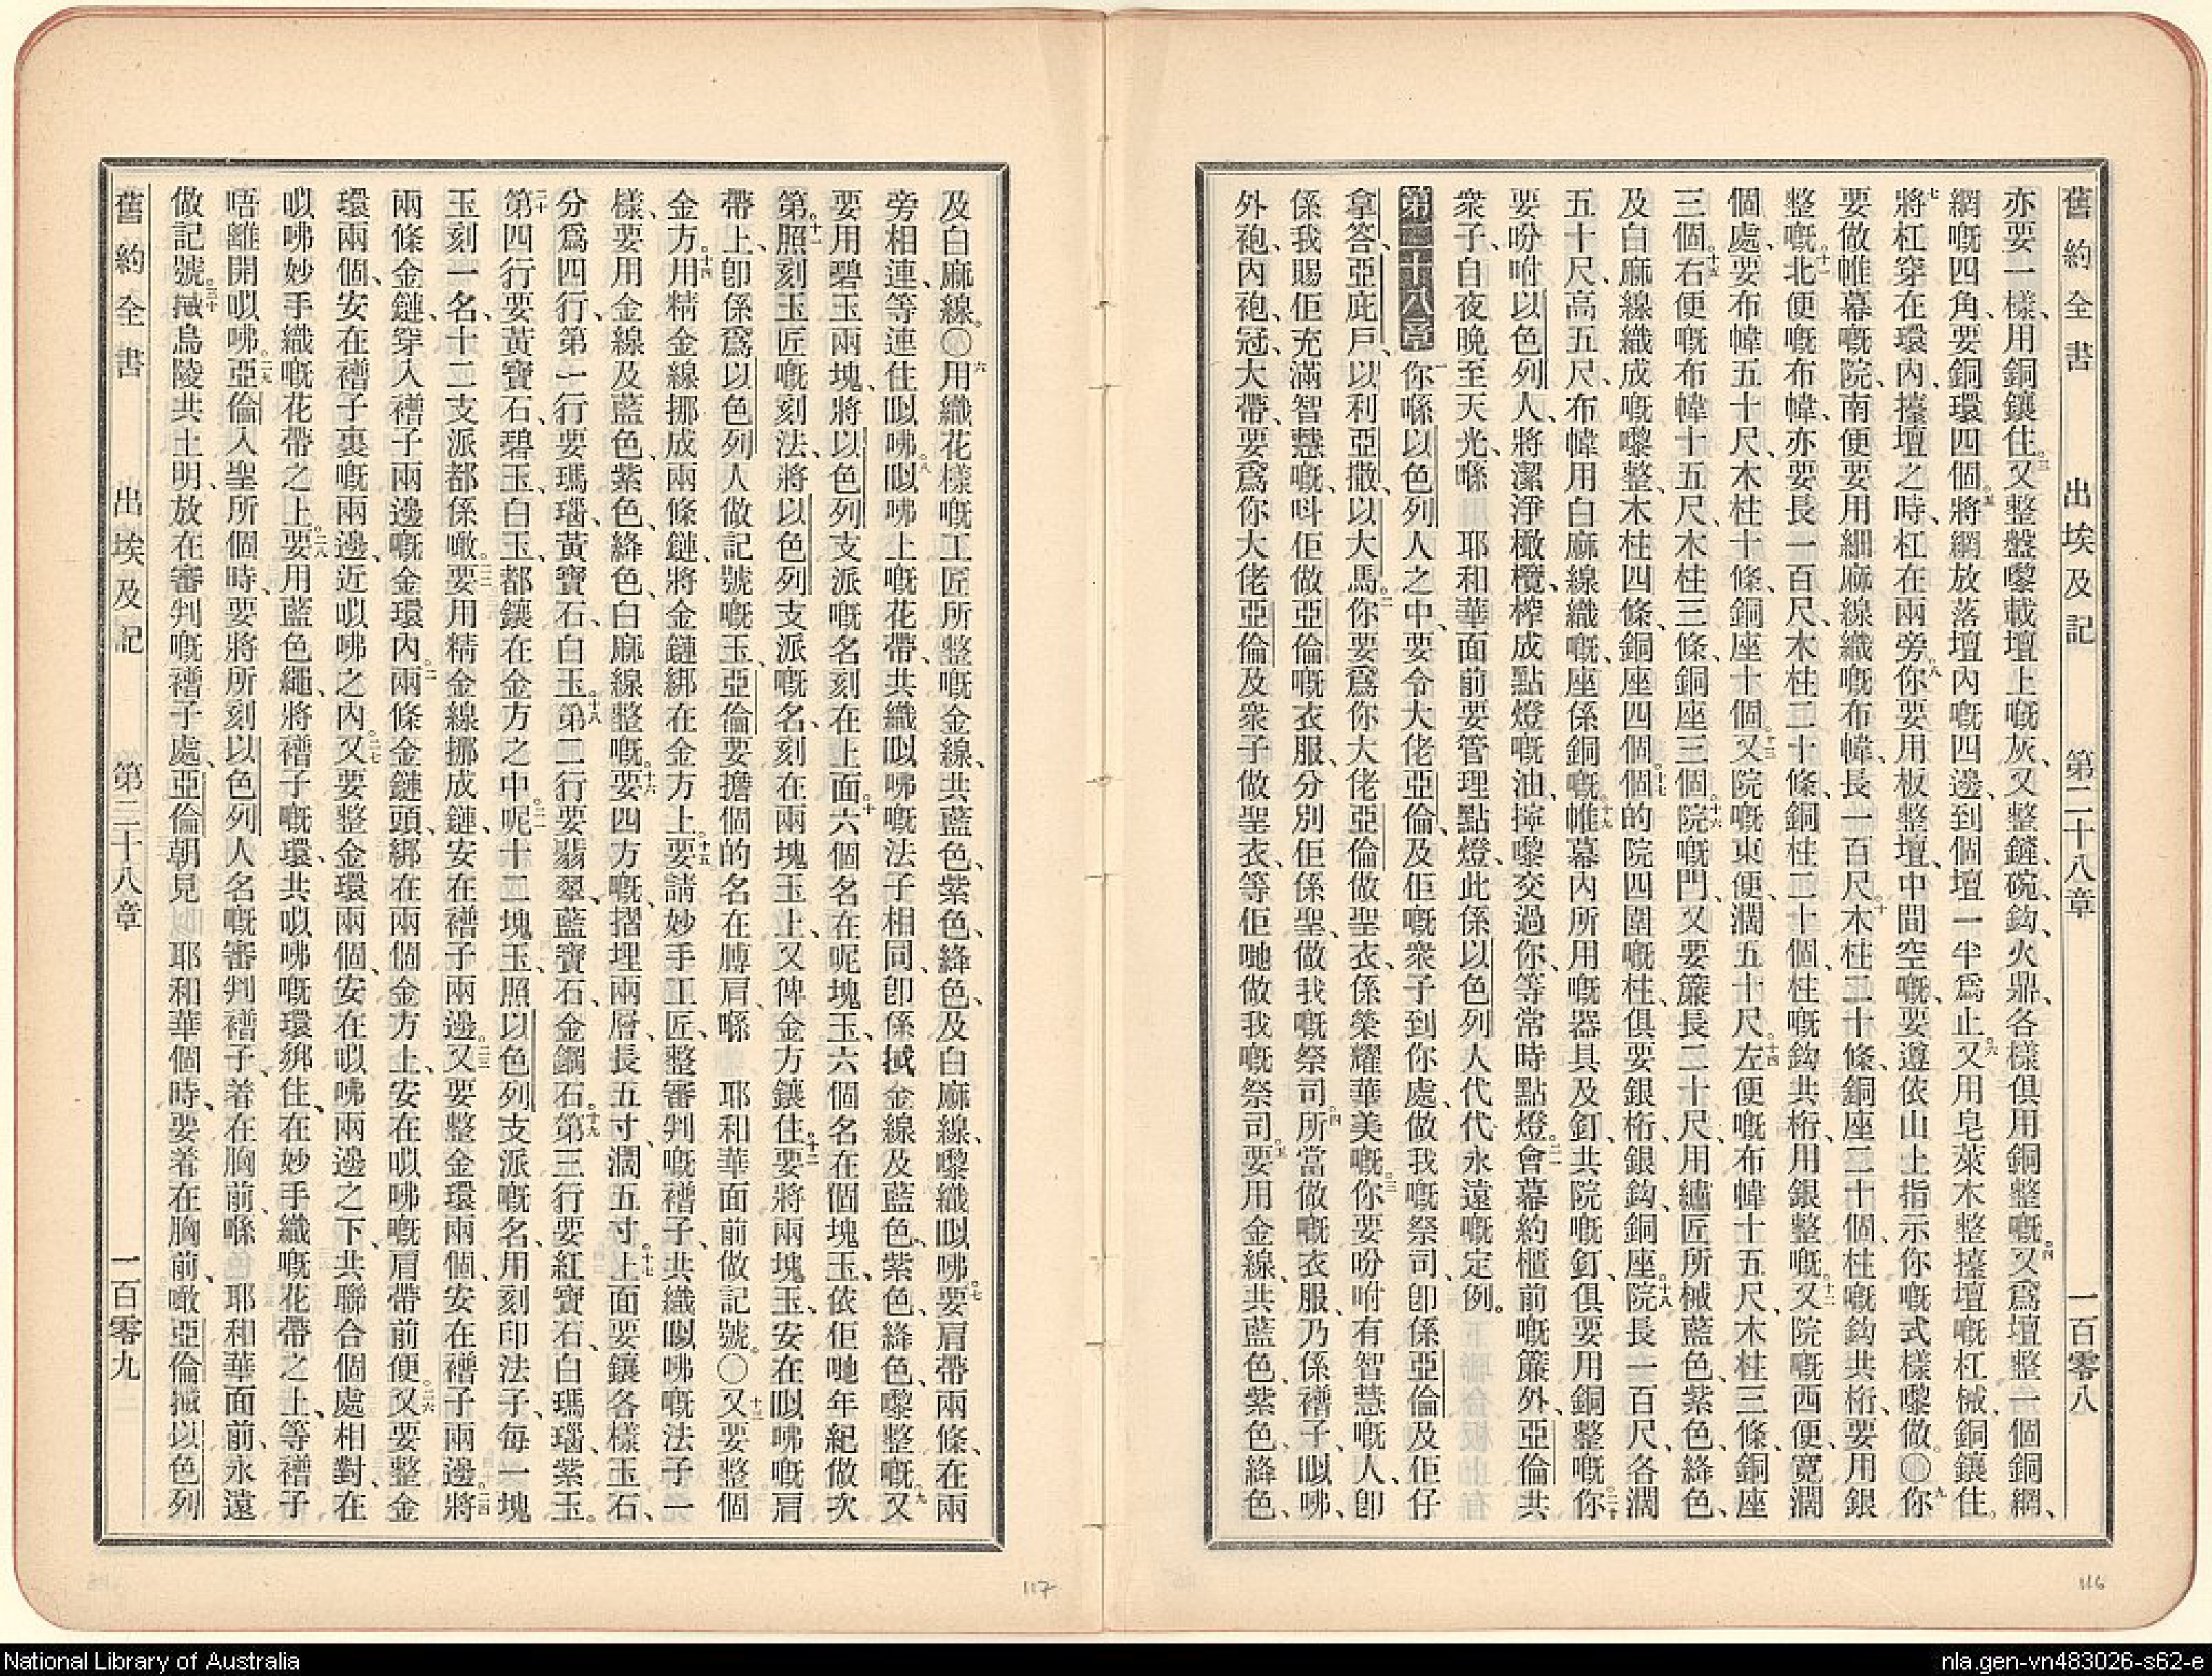 舊約全書　出埃及記　第二十八章　一百零八
亦要一樣、用銅鑲住。三又整盤嚟載壇上嘅灰、又整鏟、碗、鈎、火鼎、各樣俱用銅整嘅。四又爲壇整一個銅網、
網嘅四角、要銅環四個。五將網放落壇內嘅四邊、到個壇一半爲止。六又用皂萊木整擡壇嘅杠、椷銅鑲住。
七將杠穿在環內、擡壇之時、杠在兩旁。八你要用板整壇、中間空嘅、要遵依山上指示你嘅式樣嚟做。〇九你
要做帷幕嘅院、南便要用細麻線織嘅布幃、長一百尺。十木柱二十條、銅座二十個、柱嘅鈎共桁、要用銀
整嘅。十一北便嘅布幃、亦要長一百尺、木柱二十條、銅柱二十個、柱嘅鈎共桁、用銀整嘅。十二又院嘅西便、寬濶
個處、要布幃五十尺、木柱十條、銅座十個。十三又院嘅東便、濶五十尺。十四左便嘅布幃十五尺、木柱三條、銅座
三個。十五右便嘅布幃十五尺、木柱三條、銅座三個。十六院嘅門、又要簾長二十尺、用繡匠所椷藍色、紫色、絳色、
及白麻線織成嘅嚟整、木柱四條、銅座四個。十七個的院四圍嘅柱、俱要銀桁、銀鈎、銅座。十八院長一百尺、各濶
五十尺、高五尺、布幃用白麻線織嘅、座係銅嘅。十九帷幕內所用嘅器具及釘、共院嘅釘、俱要用銅整嘅。二十你
要吩咐以色列人、將潔淨橄欖榨成點燈嘅油、擰嚟交過你、等常時點燈。二一會幕約櫃前嘅簾外、亞倫共
衆子、自夜晚至天光、喺　耶和華面前要管理點燈、此係以色列人代代永遠嘅定例。
第二十八章　一你喺以色列人之中、要令大佬亞倫、及佢嘅衆子到你處、做我嘅祭司、卽係亞倫及佢仔
拿答、亞庇戶、以利亞撒、以大馬。二你要爲你大佬亞倫做聖衣、係榮耀華美嘅。三你要吩咐有智慧嘅人、卽
係我賜佢充滿智慧嘅、呌佢做亞倫嘅衣服、分別佢係聖、做我嘅祭司。四所當做嘅衣服、乃係褿子、㕽咈、
外袍、內袍、冠、大帶、要爲你大佬亞倫及衆子做聖衣、等佢哋做我嘅祭司。五要用金線、共藍色、紫色、絳色、
及白麻線。〇六用織花樣嘅工匠所整嘅金線、共藍色、紫色、絳色、及白麻線、嚟織㕽咈。七要肩帶兩條、在兩
旁相連、等連住㕽咈。八㕽咈上嘅花帶、共織㕽咈嘅法子相同、卽係椷金線及藍色、紫色、絳色、嚟整嘅、九又
要用碧玉兩塊、將以色列支派嘅名刻在上面。十六個名在呢塊玉、六個名在個塊玉、依佢哋年紀做次
第。十一照刻玉匠嘅刻法、將以色列支派嘅名、刻在兩塊玉上、又俾金方鑲住。十二要將兩塊玉、安在㕽咈嘅肩
帶上、卽係爲以色列人做記號嘅玉、亞倫要擔個的名在膊肩、喺　耶和華面前做記號。〇十三又要整個
金方。十四用精金線挪成兩條鏈、將金鏈綁在金方上。十五要請妙手工匠、整審判嘅褿子、共織㕽咈嘅法子一
樣、要用金線及藍色、紫色、絳色、白麻線整嘅。十六要四方嘅、摺埋兩層、長五寸、濶五寸。十七上面要鑲各樣玉石、
分爲四行、第一行要瑪瑙、黃寶石、白玉。十八第二行要翡翠、藍寶石、金鋼石。十九第三行要紅寶石、白瑪瑙、紫玉。
二十第四行要黃寶石、碧玉、白玉、都鑲在金方之中。二一呢十二塊玉、照以色列支派嘅名、用刻印法子、每一塊
玉刻一名、十二支派都係噉。二二要用精金線挪成鏈、安在褿子兩邊。二三又要整金環兩個、安在褿子兩邊。二四將
兩條金鏈、穿入褿子兩邊嘅金環內。二五兩條金鏈頭、綁在兩個金方上、安在㕽咈嘅肩帶前便。二六又要整金
環兩個、安在褿子裏嘅兩邊、近㕽咈之內。二七又要整金環兩個、安在㕽咈兩邊之下、共聯合個處相對、在
㕽咈妙手織嘅花帶之上。二八要用藍色繩、將褿子嘅環、共㕽咈嘅環綁住、在妙手織嘅花帶之上、等褿子
唔離開㕽咈。二九亞倫入聖所個時、要將所刻以色列人名嘅審判褿子、着在胸前、喺　耶和華面前、永遠
做記號。三十椷烏陵共土明、放在審判嘅褿子處、亞倫朝見　耶和華個時、要着在胸前、噉亞倫椷以色列
舊約全書　出埃及記　第二十八章　一百零九
116
117
National Library of Australia
nla.gen-vn483026-s62-e